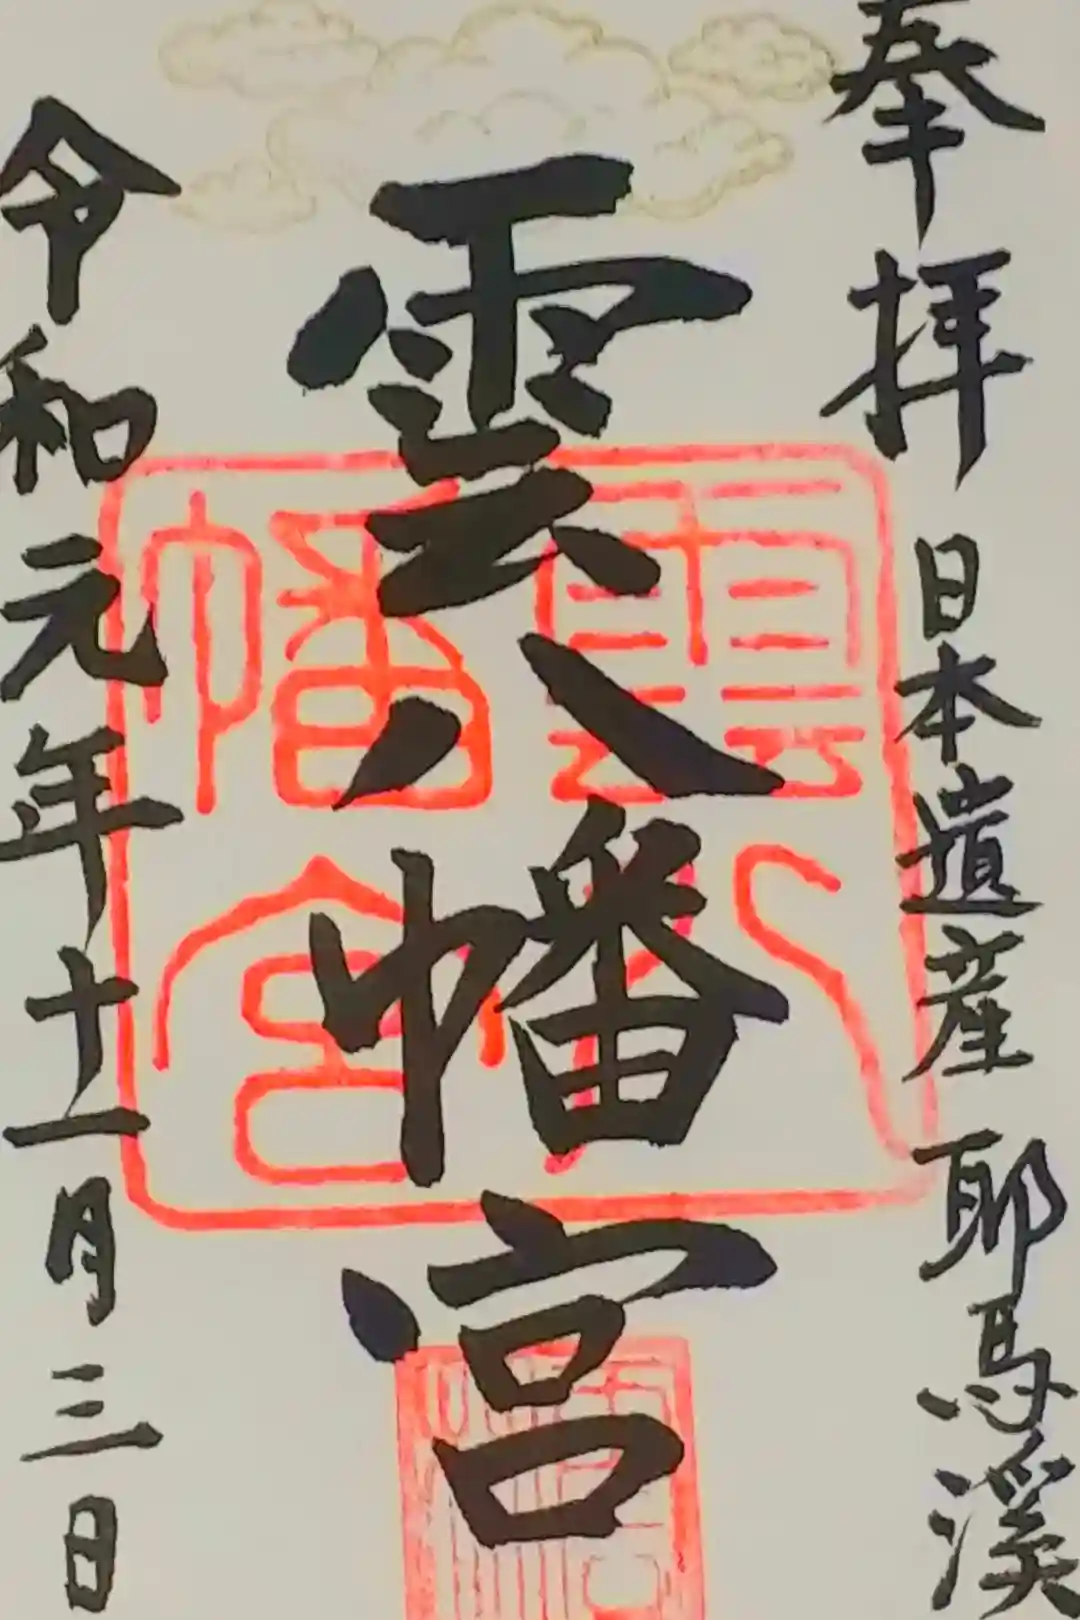 奉拝 日本遺産 耶馬溪
雲八幡宮
雲八幡宮
令和元年十一月三日